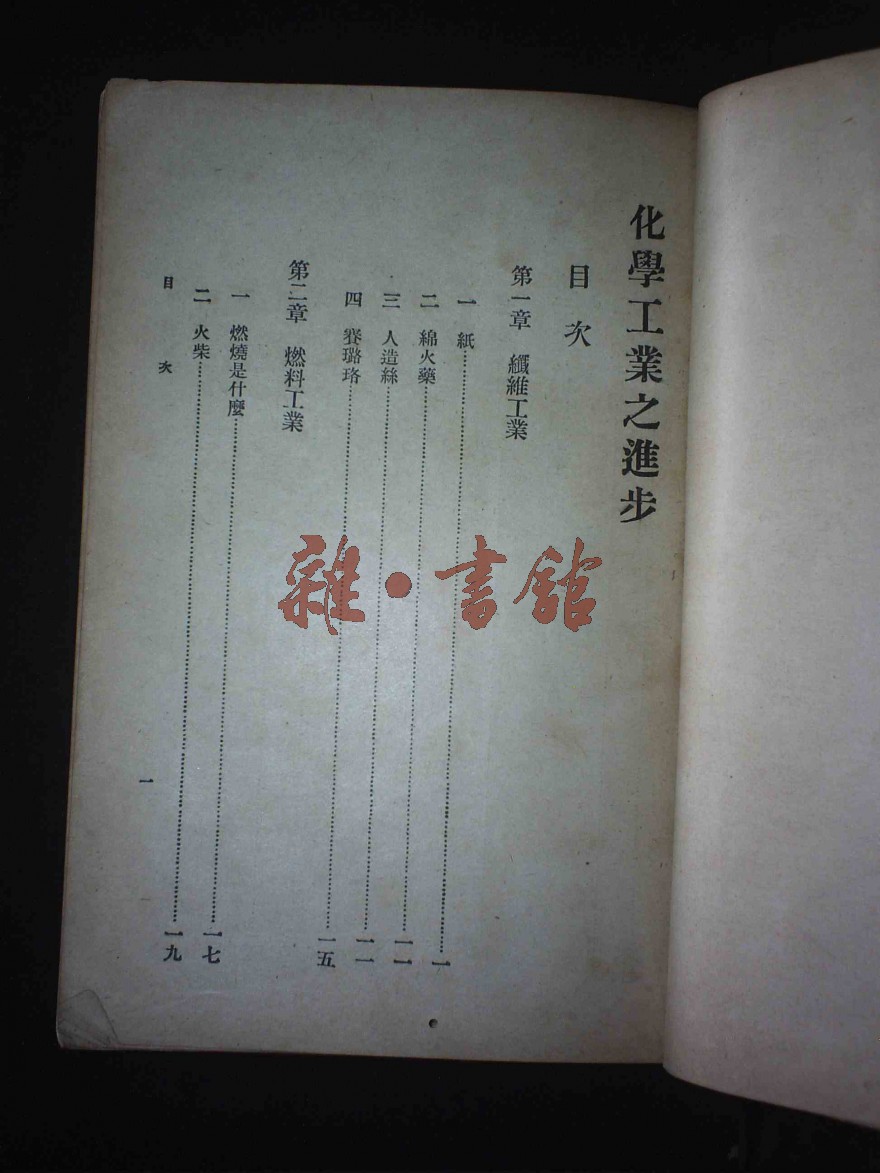 化學工業之進步
目次
第一章 纖維工業
一 紙……一
二 綿火藥……一一
三 人造絲……一一
四 賽璐珞……一五
第二章 燃料工業
一 燃燒是什麼……一七
二 火柴……一九
目次
一
雜·書館